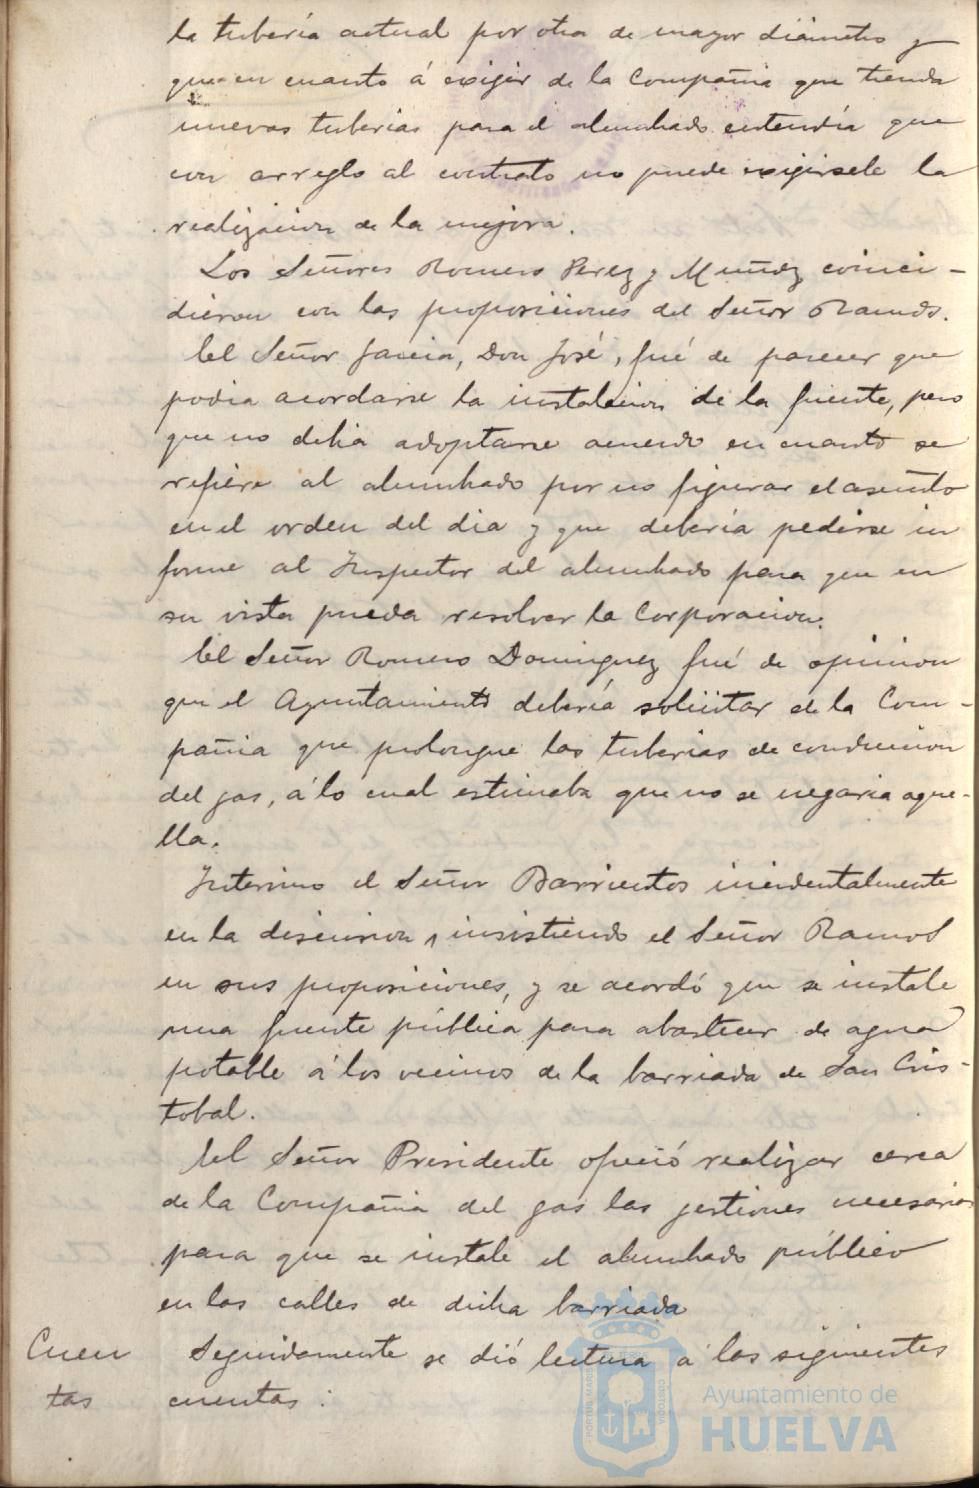 la tuberia actual por otra de mayor diámetro y
que en cuanto á exigir de la Compañia que tienda
nuevas tuberias para el alumbrado entendia que
con arreglo al contrato no puede exigirsele la
realizacion de la mejora.
Los Señores Romero Perez y Muñoz coinci-
dieron con las proposiciones del Señor Ramos.
El Señor Garcia, Don José, fué de parecer que
podia acordarse la instalacion de la fuente, pero
que no debia adoptarse acuerdo en cuanto se
refiere al alumbrado por no figurar el asunto
en el orden del dia y que deberia pedirse in
forme al Inspector del alumbrado para que en
su vista pueda resolver la Corporacion.
El Señor Romero Dominguez fué de opinion
que el Ayuntamiento deberia solicitar de la Com-
pañia que prolongue las tuberias de conduccion
del gas, á lo cual estimaba que no se negaria aque-
lla.
Intervino el Señor Barrientos incidentalmente
en la discusion, insistiendo el Señor Ramos
en sus proposiciones, y se acordó que se instale
una fuente pública para abastecer de agua
potable á los vecinos de la barriada de San Cris-
tobal.
El Señor Presidente ofreció realizar cerca
de la Compañia del gas las gestiones necesarias
para que se instale el alumbrado público
en las calles de dicha barriada
Cuen
tas
Seguidamente se dió lectura á las siguientes
cuentas:
Ayuntamiento de
HUELVA